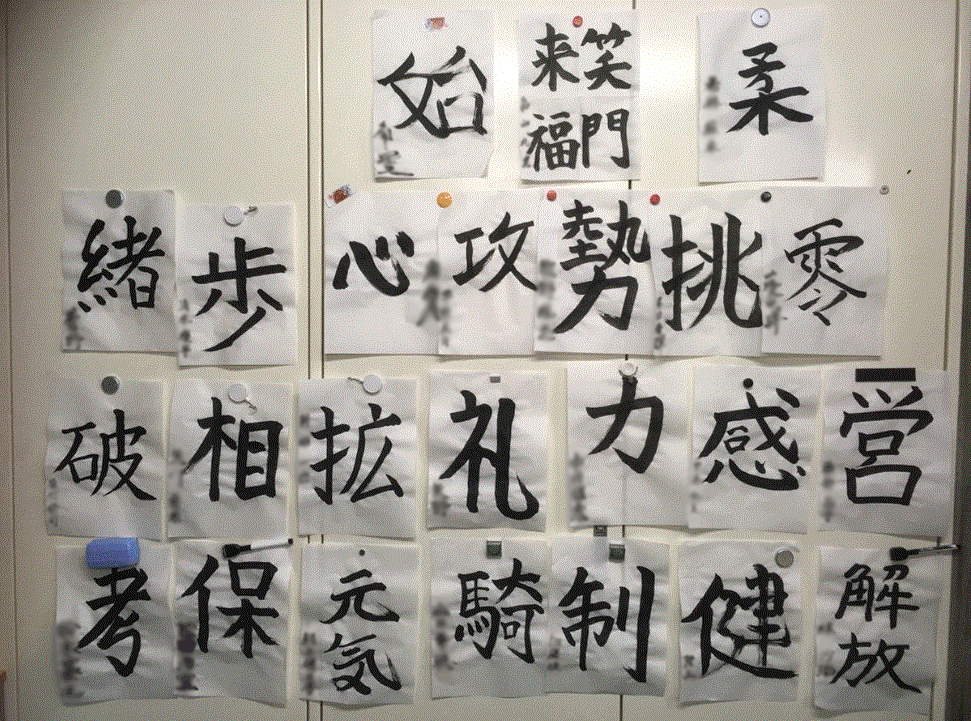 始
笑門
来福
柔
緒
歩
心
攻
勢
挑
零
破
相
拡
礼
力
感
営
考
保
元気
騎
制
健
解放